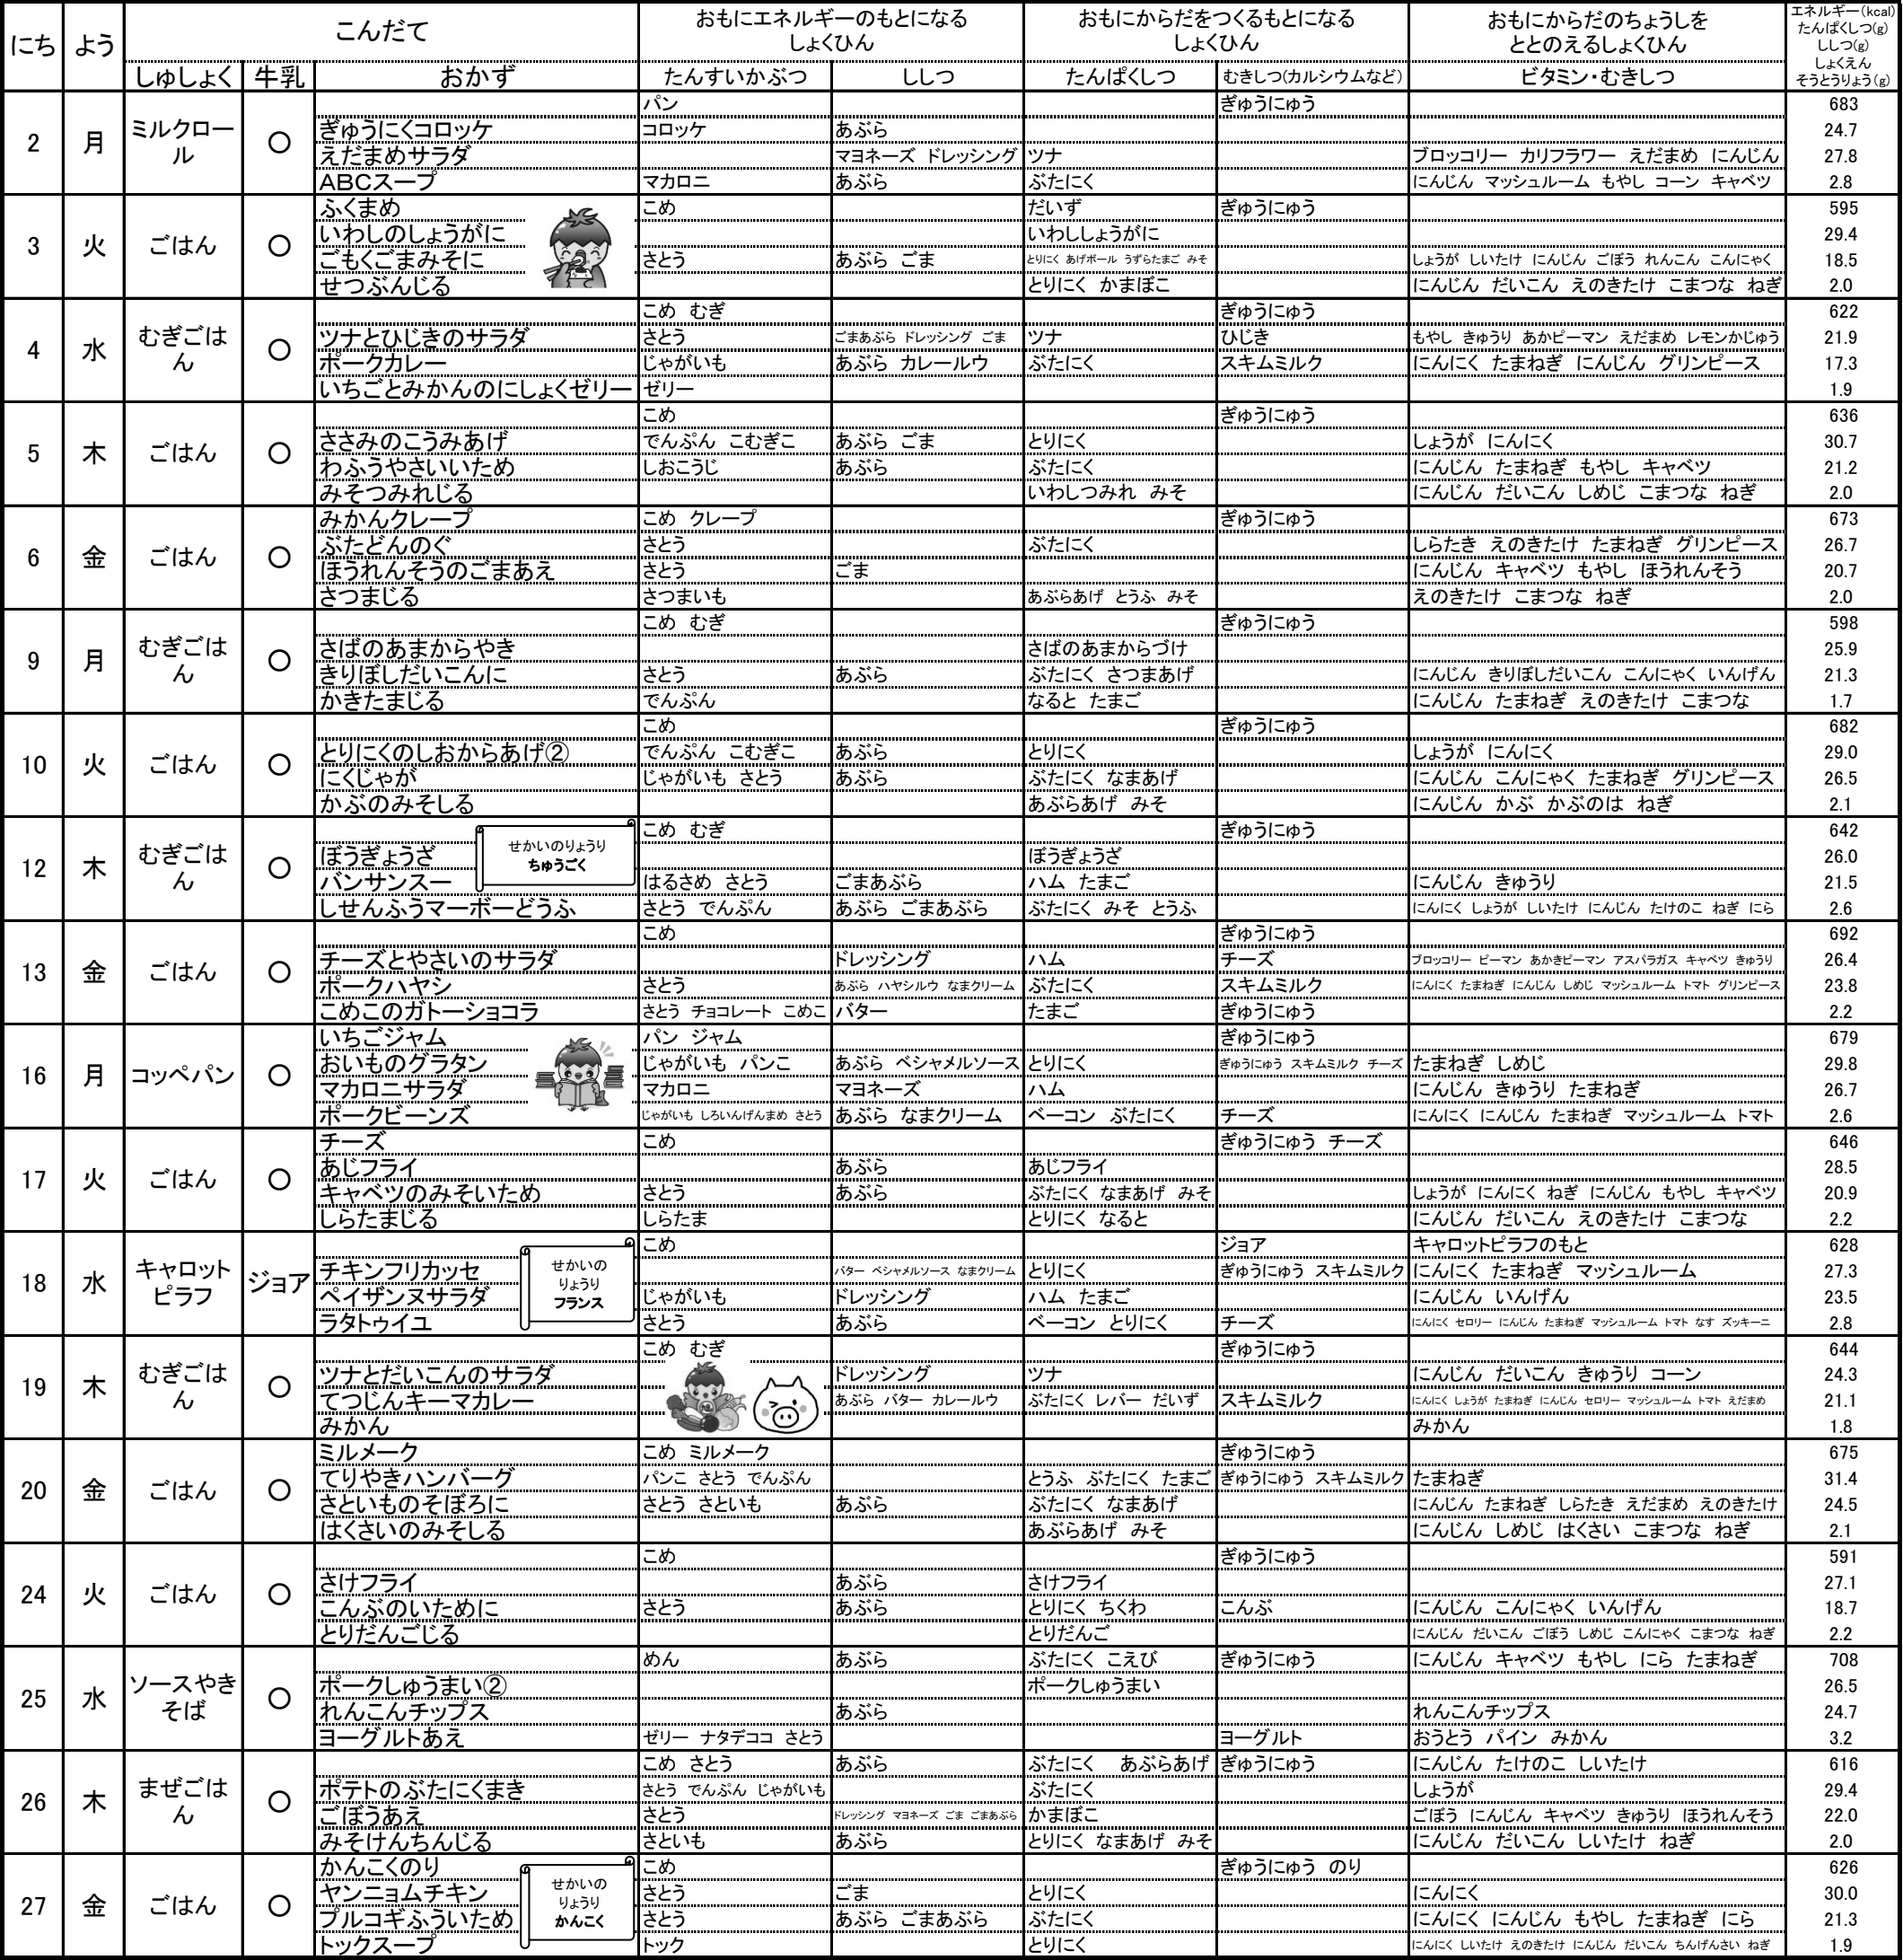 にち よう こんだて おもにエネルギーのもとになる しょくひん おもにからだをつくるもとになる しょくひん おもにからだのちょうしを ととのえるしょくひん エネルギー(kcal) たんぱくしつ(g) ししつ(g) しょくえん そうとうりょう(g)
しゅしょく 牛乳 おかず たんすいかぶつ ししつ たんぱくしつ むきしつ(カルシウムなど) ビタミン・むきしつ
2 月 ミルクロール ○
パン ぎゅうにゅう 683
ぎゅうにくコロッケ コロッケ あぶら 24.7
えだまめサラダ マヨネーズ ドレッシング ツナ ブロッコリー カリフラワー えだまめ にんじん 27.8
ABCスープ マカロニ あぶら ぶたにく にんじん マッシュルーム もやし コーン キャベツ 2.8
3 火 ごはん ○
ふくまめ こめ だいず ぎゅうにゅう 595
いわしのしょうがに いわししょうがに 29.4
ごもくごまみそに さとう あぶら ごま とりにく あげボール うずらたまご みそ しょうが しいたけ にんじん ごぼう れんこん こんにゃく 18.5
せつぶんじる とりにく かまぼこ にんじん だいこん えのきたけ こまつな ねぎ 2.0
4 水 むぎごはん ○
こめ むぎ ぎゅうにゅう 622
ツナとひじきのサラダ さとう ごまあぶら ドレッシング ごま ツナ ひじき もやし きゅうり あかピーマン えだまめ レモンかじゅう 21.9
ポークカレー じゃがいも あぶら カレールウ ぶたにく スキムミルク にんにく たまねぎ にんじん グリンピース 17.3
いちごとみかんのにしょくゼリー ゼリー 1.9
5 木 ごはん ○
こめ ぎゅうにゅう 636
ささみのこうみあげ でんぷん こむぎこ あぶら ごま とりにく しょうが にんにく 30.7
わふうやさいいため しおこうじ あぶら ぶたにく にんじん たまねぎ もやし キャベツ 21.2
みそつみれじる いわしつみれ みそ にんじん だいこん しめじ こまつな ねぎ 2.0
6 金 ごはん ○
みかんクレープ こめ クレープ ぎゅうにゅう 673
ぶたどんのぐ さとう ぶたにく しらたき えのきたけ たまねぎ グリンピース 26.7
ほうれんそうのごまあえ さとう ごま にんじん キャベツ もやし ほうれんそう 20.7
さつまじる さつまいも あぶらあげ とうふ みそ えのきたけ こまつな ねぎ 2.0
9 月 むぎごはん ○
こめ むぎ ぎゅうにゅう 598
さばのあまからやき さばのあまからづけ 25.9
きりぼしだいこんに さとう あぶら ぶたにく さつまあげ にんじん きりぼしだいこん こんにゃく いんげん 21.3
かきたまじる でんぷん なると たまご にんじん たまねぎ えのきたけ こまつな 1.7
10 火 ごはん ○
こめ ぎゅうにゅう 682
とりにくのしおからあげ② でんぷん こむぎこ あぶら とりにく しょうが にんにく 29.0
にくじゃが じゃがいも さとう あぶら ぶたにく なまあげ にんじん こんにゃく たまねぎ グリンピース 26.5
かぶのみそしる あぶらあげ みそ にんじん かぶ かぶのは ねぎ 2.1
12 木 むぎごはん ○
せかいのりょうり ちゅうごく
こめ むぎ ぎゅうにゅう 642
ぼうぎょうざ ぼうぎょうざ 26.0
バンサンスー はるさめ さとう ごまあぶら ハム たまご にんじん きゅうり 21.5
しせんふうマーボーどうふ さとう でんぷん あぶら ごまあぶら ぶたにく みそ とうふ にんにく しょうが しいたけ にんじん たけのこ ねぎ にら 2.6
13 金 ごはん ○
こめ ぎゅうにゅう 692
チーズとやさいのサラダ ドレッシング ハム チーズ ブロッコリー ピーマン あかきピーマン アスパラガス キャベツ きゅうり 26.4
ポークハヤシ さとう あぶら ハヤシルウ なまクリーム ぶたにく スキムミルク にんにく たまねぎ にんじん しめじ マッシュルーム トマト グリンピース 23.8
こめこのガトーショコラ さとう チョコレート こめこ バター たまご ぎゅうにゅう 2.2
16 月 コッペパン ○
いちごジャム パン ジャム ぎゅうにゅう 679
おいものグラタン じゃがいも パンこ あぶら ベシャメルソース とりにく ぎゅうにゅう スキムミルク チーズ たまねぎ しめじ 29.8
マカロニサラダ マカロニ マヨネーズ ハム にんじん きゅうり たまねぎ 26.7
ポークビーンズ じゃがいも しろいんげんまめ さとう あぶら なまクリーム ベーコン ぶたにく チーズ にんにく にんじん たまねぎ マッシュルーム トマト 2.6
17 火 ごはん ○
チーズ こめ ぎゅうにゅう チーズ 646
あじフライ あぶら あじフライ 28.5
キャベツのみそいため さとう あぶら ぶたにく なまあげ みそ しょうが にんにく ねぎ にんじん もやし キャベツ 20.9
しらたまじる しらたま とりにく なると にんじん だいこん えのきたけ こまつな 2.2
18 水 キャロットピラフ ジョア
せかいの りょうり フランス
こめ ジョア キャロットピラフのもと 628
チキンフリカッセ バター ベシャメルソース なまクリーム とりにく ぎゅうにゅう スキムミルク にんにく たまねぎ マッシュルーム 27.3
ペイザンヌサラダ じゃがいも ドレッシング ハム たまご にんじん いんげん 23.5
ラタトゥイユ さとう あぶら ベーコン とりにく チーズ にんにく セロリー にんじん たまねぎ マッシュルーム トマト なす ズッキーニ 2.8
19 木 むぎごはん ○
こめ むぎ ぎゅうにゅう 644
ツナとだいこんのサラダ ドレッシング ツナ にんじん だいこん きゅうり コーン 24.3
てつじんキーマカレー あぶら バター カレールウ ぶたにく レバー だいず スキムミルク にんにく しょうが たまねぎ にんじん セロリー マッシュルーム トマト えだまめ 21.1
みかん みかん 1.8
20 金 ごはん ○
ミルメーク こめ ミルメーク ぎゅうにゅう 675
てりやきハンバーグ パンこ さとう でんぷん とうふ ぶたにく たまご ぎゅうにゅう スキムミルク たまねぎ 31.4
さといものそぼろに さとう さといも あぶら ぶたにく なまあげ にんじん たまねぎ しらたき えだまめ えのきたけ 24.5
はくさいのみそしる あぶらあげ みそ にんじん しめじ はくさい こまつな ねぎ 2.1
24 火 ごはん ○
こめ ぎゅうにゅう 591
さけフライ あぶら さけフライ 27.1
こんぶのいために さとう あぶら とりにく ちくわ こんぶ にんじん こんにゃく いんげん 18.7
とりだんごじる とりだんご にんじん だいこん ごぼう しめじ こんにゃく こまつな ねぎ 2.2
25 水 ソースやきそば ○
めん あぶら ぶたにく こえび ぎゅうにゅう にんじん キャベツ もやし にら たまねぎ 708
ポークしゅうまい② ポークしゅうまい 26.5
れんこんチップス あぶら れんこんチップス 24.7
ヨーグルトあえ ゼリー ナタデココ さとう ヨーグルト おうとう パイン みかん 3.2
26 木 まぜごはん ○
こめ さとう あぶら ぶたにく あぶらあげ ぎゅうにゅう にんじん たけのこ しいたけ 616
ポテトのぶたにくまき さとう でんぷん じゃがいも ぶたにく しょうが 29.4
ごぼうあえ さとう ドレッシング マヨネーズ ごま ごまあぶら かまぼこ ごぼう にんじん キャベツ きゅうり ほうれんそう 22.0
みそけんちんじる さといも あぶら とりにく なまあげ みそ にんじん だいこん しいたけ ねぎ 2.0
27 金 ごはん ○
せかいの りょうり かんこく
かんこくのり こめ ぎゅうにゅう のり 626
ヤンニョムチキン さとう ごま とりにく にんにく 30.0
プルコギふういため さとう あぶら ごまあぶら ぶたにく にんにく にんじん もやし たまねぎ にら 21.3
トックスープ トック とりにく にんにく しいたけ えのきたけ にんじん だいこん ちんげんさい ねぎ 1.9